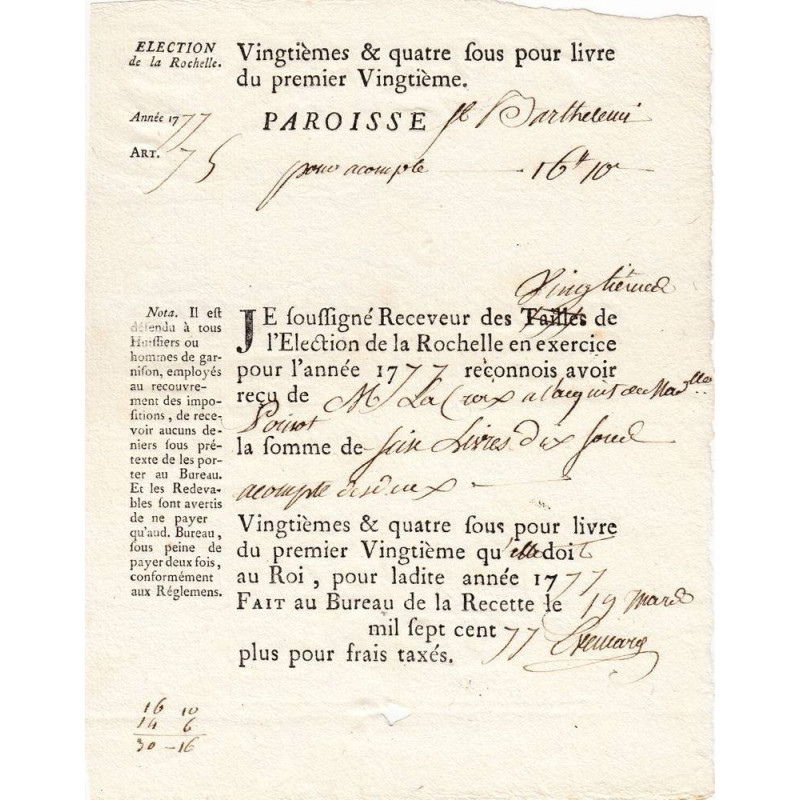 ELECTION
de la Rochelle.
Vingtièmes & quatre ſous pour livre
du premier Vingtième.
Année 1777
PAROISSE St Barthelemi
ART. 75
pour acompte 16# 10s
Nota. Il est
défendu à tous
Huiſſiers ou
hommes de gar-
niſon, employés
au recouvre-
ment des impo-
ſitions, de rece-
voir aucuns de-
niers ſous pré-
texte de les por-
ter au Bureau.
Et les Redeva-
bles ſont avertis
de ne payer
qu'aud. Bureau,
ſous peine de
payer deux fois,
conformément
aux Réglemens.
Vingtièmes
JE ſouſſigné Receveur des Tailles de
l'Election de la Rochelle en exercice
pour l'année 1777 reconnois avoir
reçu de M. La Croix a l'acquit de Madlle
Poirot
la ſomme de seize Livres dix sous
acompte des deux
Vingtièmes & quatre ſous pour livre
du premier Vingtième qu'elle doit
au Roi, pour ladite année 1777
FAIT au Bureau de la Recette le 19 mars
mil sept cent 77
plus pour frais taxés.
16 10
14 6
30 - 16